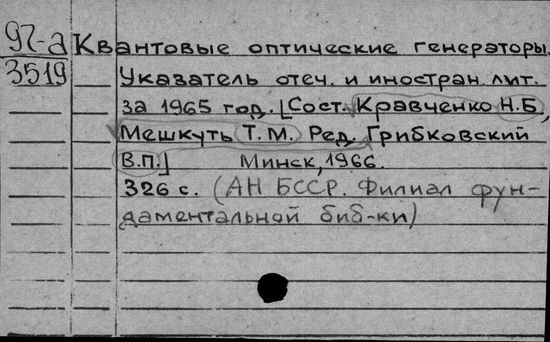 97-а
3519
Квантовые оптические генераторы.
Указатель отеч. и иностран. лит.
за 1965 год. [Сост. Кравченко Н.Б.,
Мешкуть Т.М. Ред. Грибковский
В.П.] Минск, 1966.
326 с. (АН БССР. Филиал фун-
даментальной биб-ки)